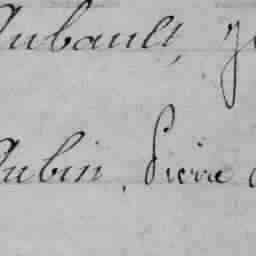 Aubault,
Aubin, Pierre